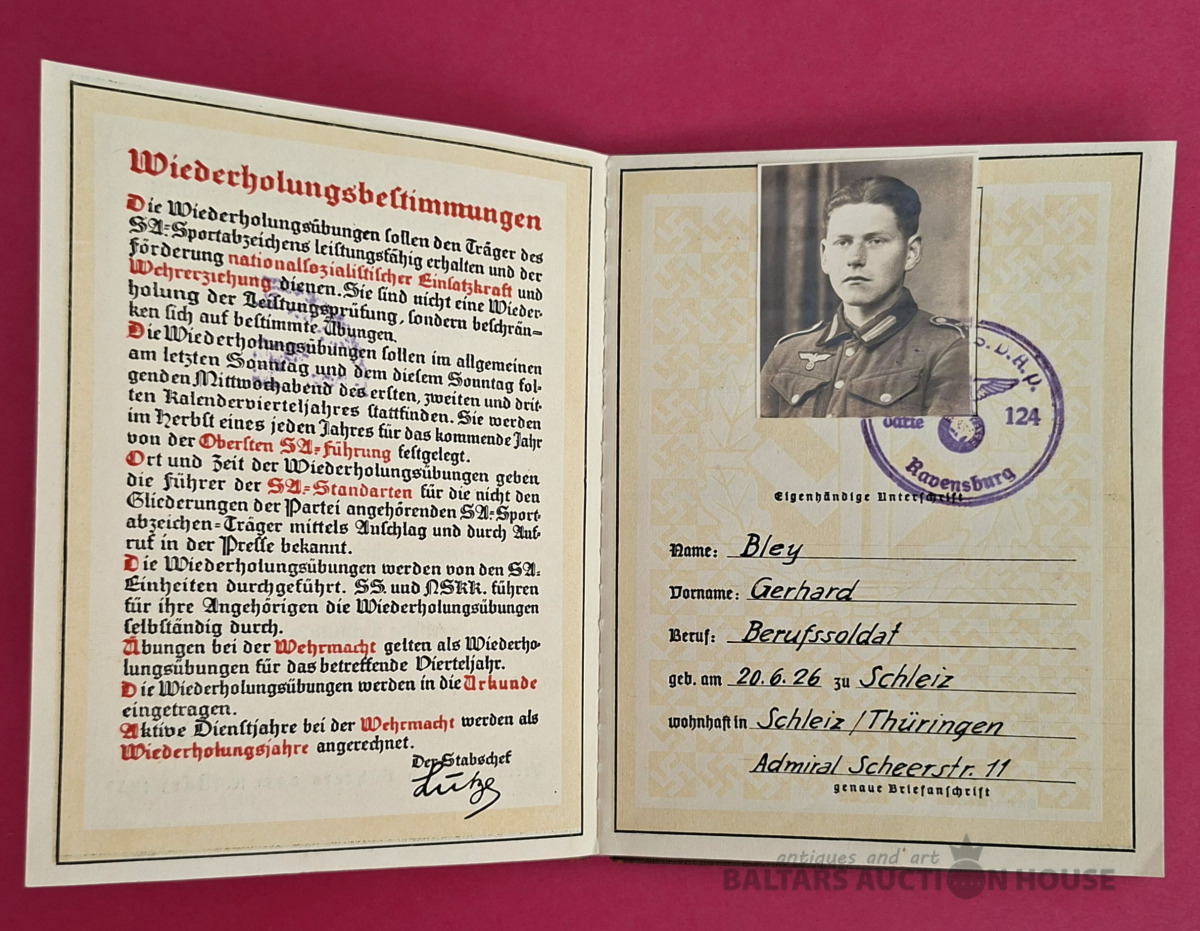 Wiederholungsbestimmungen
Die Wiederholungsübungen sollen den Träger des
SA=Sportabzeichens leistungsfähig erhalten und der
Förderung nationalsozialistischer Einsatzkraft und
Wehrerziehung dienen. Sie sind nicht eine Wieder-
holung der Leistungsprüfung, sondern beschrän=
ken sich auf bestimmte Übungen.
Die Wiederholungsübungen sollen im allgemeinen
am letzten Sonntag und dem diesem Sonntag fol-
genden Mittwochabend des ersten, zweiten und drit-
ten Kalendervierteljahres stattfinden. Sie werden
im Herbst eines jeden Jahres für das kommende Jahr
von der Obersten SA=Führung festgelegt.
Ort und Zeit der Wiederholungsübungen geben
die Führer der SA=Standarten für die nicht den
Gliederungen der Partei angehörenden SA=Sport-
abzeichen=Träger mittels Anschlag und durch Auf-
ruf in der Presse bekannt.
Die Wiederholungsübungen werden von den SA=
Einheiten durchgeführt. SS. und NSKK. führen
für ihre Angehörigen die Wiederholungsübungen
selbständig durch.
Übungen bei der Wehrmacht gelten als Wiederho-
lungsübungen für das betreffende Vierteljahr.
Die Wiederholungsübungen werden in die Urkunde
eingetragen.
Aktive Dienstjahre bei der Wehrmacht werden als
Wiederholungsjahre angerechnet.
Der Stabschef
Lutze
S.D.A.P.
darte 124
Ravensburg
Eigenhändige Unterschrift
Name: Bley
Vorname: Gerhard
Beruf: Berufssoldat
geb. am 20.6.26 zu Schleiz
wohnhaft in Schleiz / Thüringen
Admiral Scheerstr. 11
genaue Briefanschrift
antiques and art
BALTARS AUCTION HOUSE